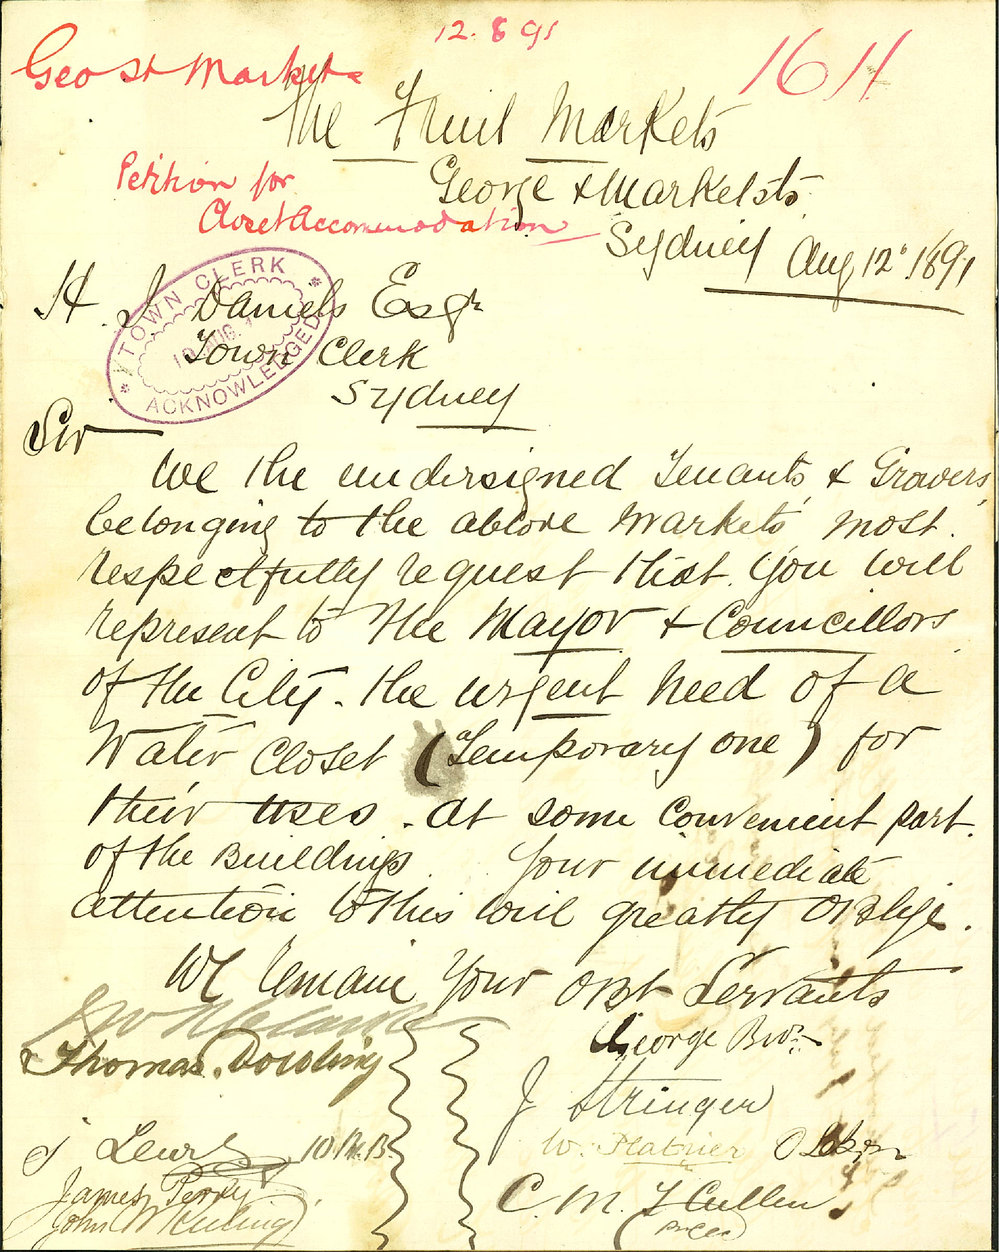 12.8.91
Geo St Markets
16 11
The Fruit Markets
George & Market Sts
Petition for
Closet Accommodation
Sydney Aug 12 1891
TOWN CLERK
ACKNOWLEDGED
H. J. Daniels Esqr
Town Clerk
Sydney
Sir
We the undersigned Tenants & Growers
belonging to the above Markets most
respectfully request that you will
represent to the Mayor & Councillors
of the City. the urgent need of a
Water Closet (Temporary one) for
their uses. at some convenient part
of the Buildings. Your immediate
attention to this will greatly oblige.
We remain Your Obt Servants
George Bros
Thomas Dowling
J Stringer
J Lewis
James Perry
John
C. M.